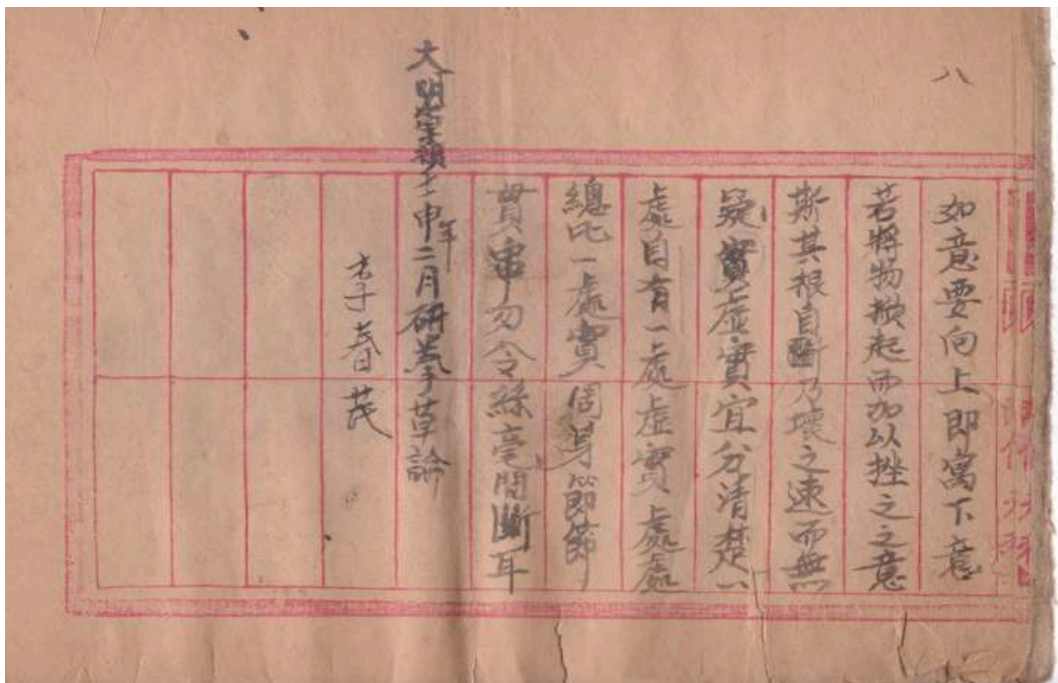 八
如意要向上即寓下意
若将物掀起而加以挫之之意
斯其根自斷乃壞之速而無
疑 實虛實宜分清楚一
處自有一處虛實處處
總比一處實周身節節
貫串勿令絲毫間斷耳
大明崇禎壬申年二月研拳草論
李春茂